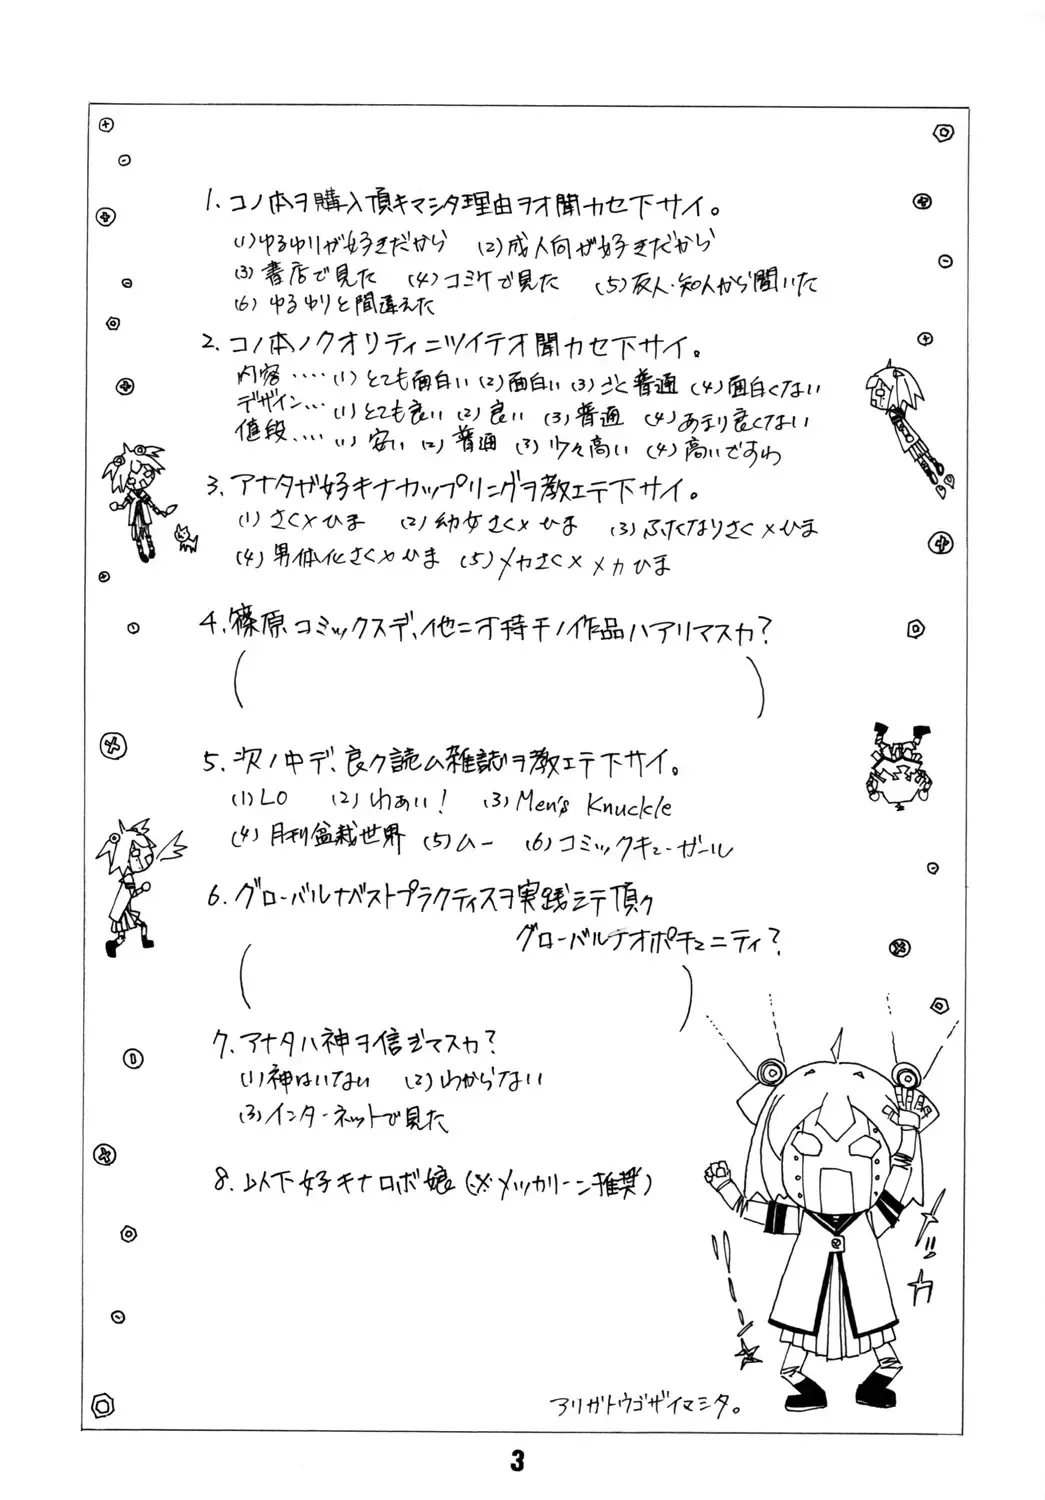 1. コノ本ヲ購入頂キマシタ理由ヲオ聞カセ下サイ。
(1)ゆるゆりが好きだから (2)成人向が好きだから
(3)書店で見た (4)コミケで見た (5)友人・知人から聞いた
(6)ゆるゆりと間違えた
2. コノ本ノクオリティニツイテオ聞カセ下サイ。
内容・・・・(1)とても面白い(2)面白い(3)ごく普通(4)面白くない
デザイン・・・(1)とても良い(2)良い(3)普通(4)あまり良くない
値段・・・・(1)安い(2)普通(3)少々高い(4)高いですわ
3. アナタガ好キナカップリングヲ教エテ下サイ。
(1)さく×ひま (2)幼女さく×ひま (3)ふたなりさく×ひま
(4)男体化さく×ひま (5)メカさく×メカひま
4. 篠原コミックスデ、他ニオ持チノ作品ハアリマスカ?
( )
5. 次ノ中デ、良ク読ム雑誌ヲ教エテ下サイ。
(1)LO (2)わぁい! (3)Men's Knuckle
(4)月刊盆栽世界 (5)ムー (6)コミックキューガール
6. グローバルナベストプラクティスヲ実践シテ頂ク
グローバルナオポチュニティ?
( )
7. アナタハ神ヲ信ジマスカ?
(1)神はいない (2)わからない
(3)インターネットで見た
8. 以下好キナロボ娘(※メッカリーン推奨)
アリガトウゴザイマシタ。
3